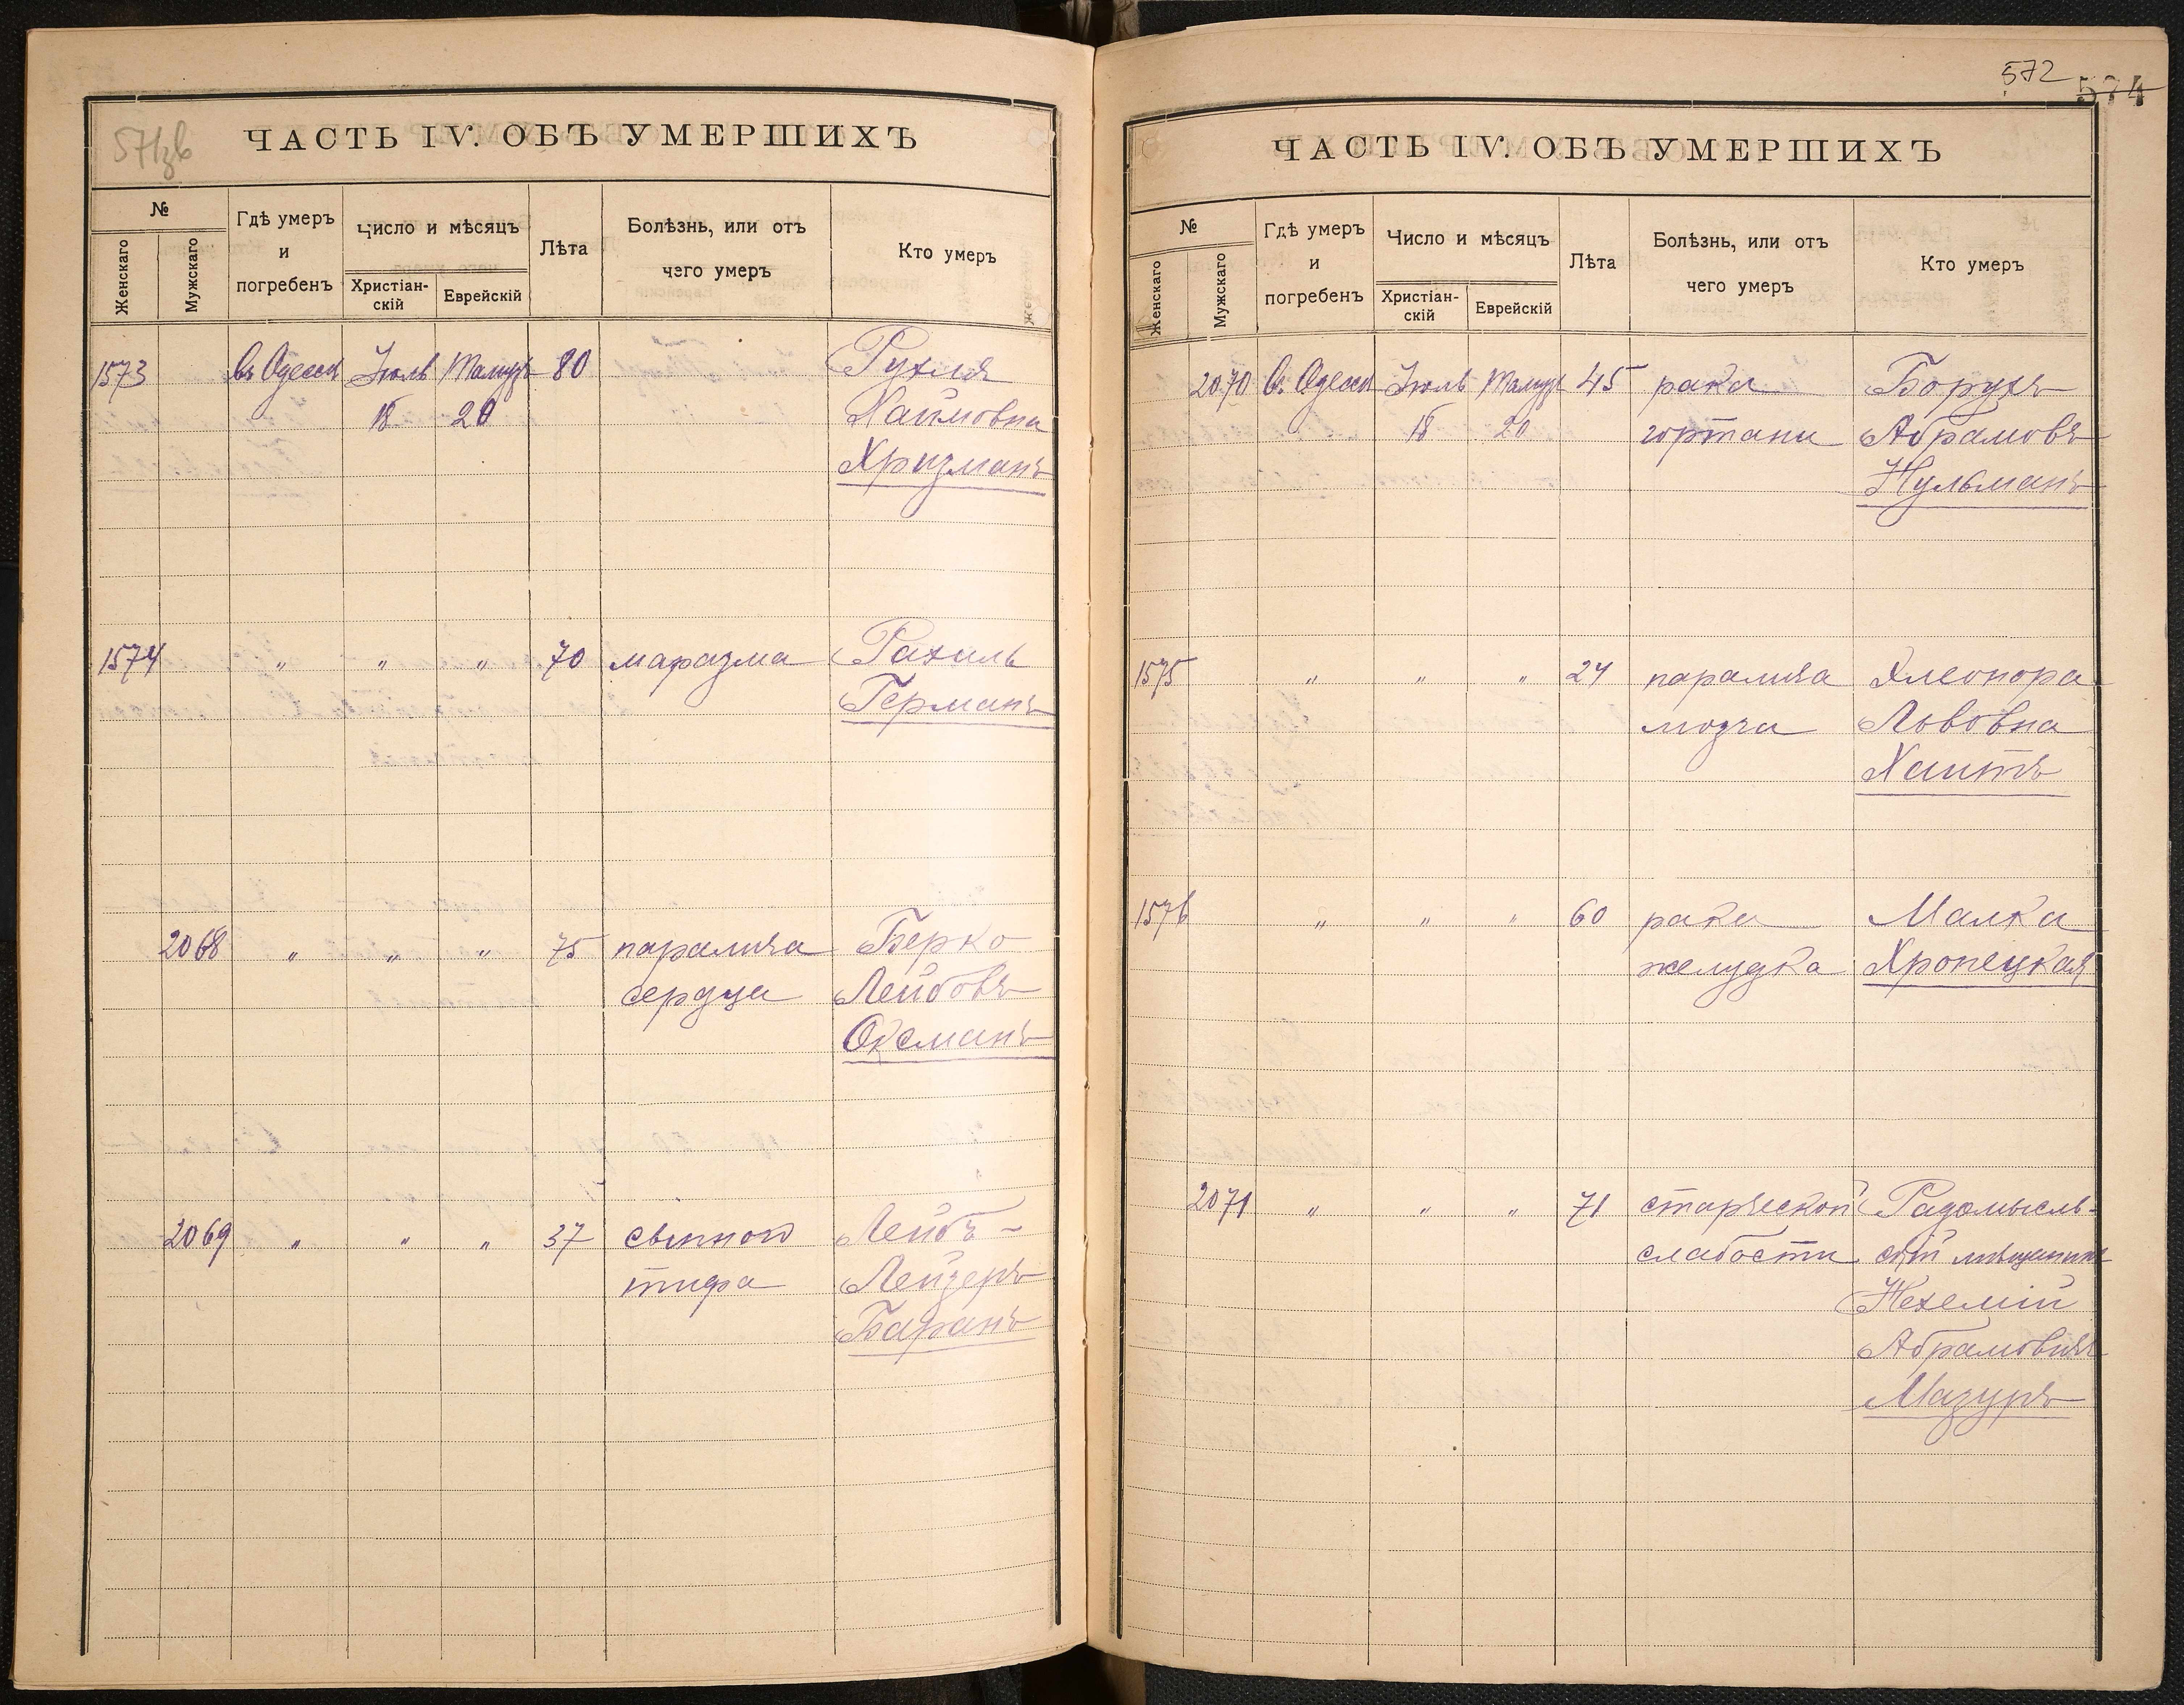 571зв
ЧАСТЬ IV. ОБЪ УМЕРШИХЪ
№
Женскаго
Мужскаго
Гдѣ умеръ
и
погребенъ
Число и мѣсяцъ
Христіан-
скій
Еврейскій
Лѣта
Болѣзнь, или отъ
чего умеръ
Кто умеръ
1573 Въ Одессѣ Іюль Тамузъ 80 Рухля
18 20 Хаимовна
Хризманъ
1574 " " " 70 маразма Рахиль
Германъ
2068 " " " 75 паралича Берко
сердца Лейбовъ
Оксманъ
2069 " " " 37 сыпного Лейбъ-
тифа Лейзеръ
Баранъ
572
574
ЧАСТЬ IV. ОБЪ УМЕРШИХЪ
№
Женскаго
Мужскаго
Гдѣ умеръ
и
погребенъ
Число и мѣсяцъ
Христіан-
скій
Еврейскій
Лѣта
Болѣзнь, или отъ
чего умеръ
Кто умеръ
2070 Въ Одессѣ Іюль Тамузъ 45 рака Борухъ
18 20 гортани Абрамовъ
Нульманъ
1575 " " " 24 паралича Элеонора
мозга Львовна
Хаитъ
1576 " " " 60 рака Малка
желудка Хропецкая
2071 " " " 71 старческой Радомысль-
слабости скій мѣщанинъ
Нехемій
Абрамовичъ
Мазуръ